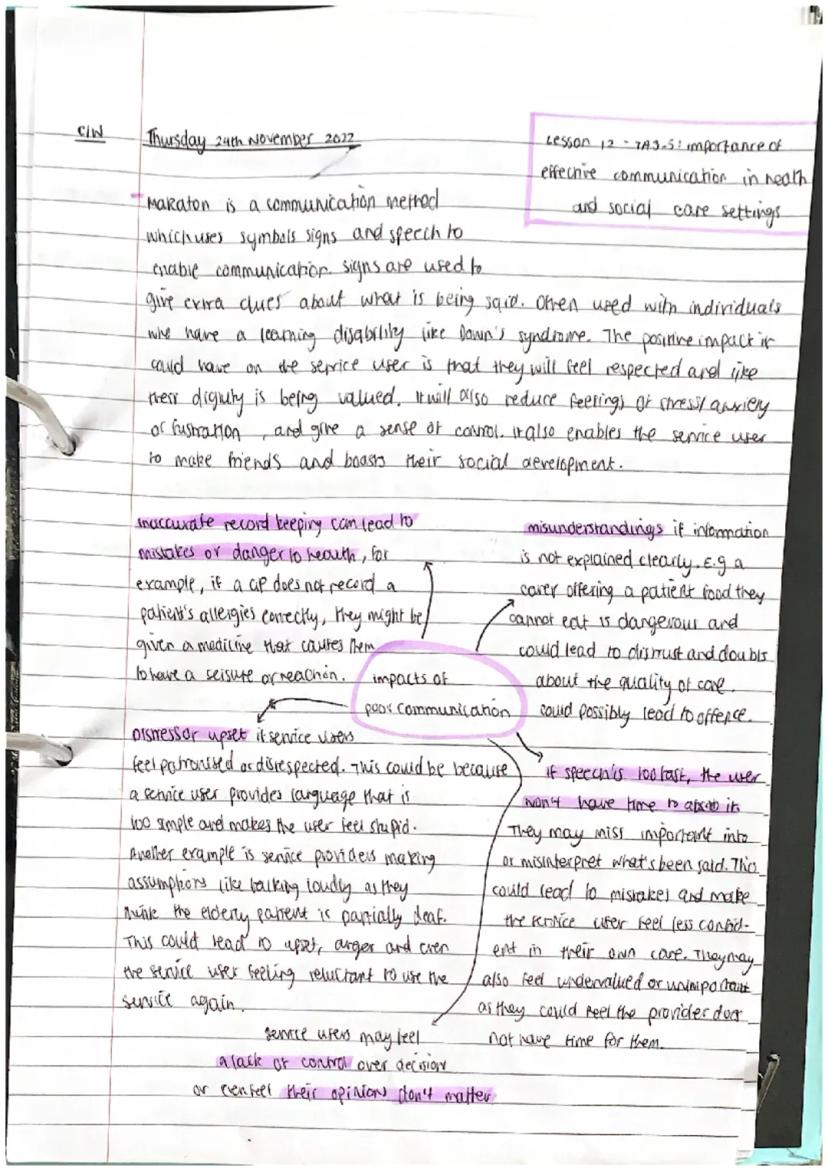 C/W
Thursday 24th November 2022
Lesson 12 - TA3.5: importance of
effective communication in health
and social care settings
- Makaton is a communication method
which uses symbols signs and speech to
enable communication. signs are used to
give extra clues about what is being said. Often used with individuals
who have a learning disability like Down's syndrome. The positive impact it
could have on the service user is that they will feel respected and like
their dignity is being valued. It will also reduce feelings of stress/anxiety
of fustration, and give a sense of control. it also enables the service user
to make friends and boasts their social development.
inaccurate record keeping can lead to
mistakes or danger to health, for
example, if a GP does not record a
patient's allergies correctly, they might be
given a medicine that causes them
to have a seisure or reaction.
misunderstandings if information
is not explained clearly. E.g a
carer offering a patient food they
cannot eat is dangerous and
could lead to distrust and doubts
about the quality of care.
could possibly lead to offence.
impacts of
poor communication
Distress or upset if service users
feel patronised or disrespected. This could be because
a service user provides language that is
too simple and makes the user feel stupid.
Another example is service providers making
assumptions like talking loudly as they
think the elderly patient is partially deaf.
This could lead to upset, anger and even
the service user feeling reluctant to use the
service again.
if speech is too fast, the user
won't have time to absorb it.
They may miss important info
or misinterpret what's been said. This
could lead to mistakes and make
the service user feel less confid-
ent in their own care. They may
also feel undervalued or unimportant
as they could feel the provider does
not have time for them.
service users may feel
a lack of control over decision
or even feel their opinions don't matter